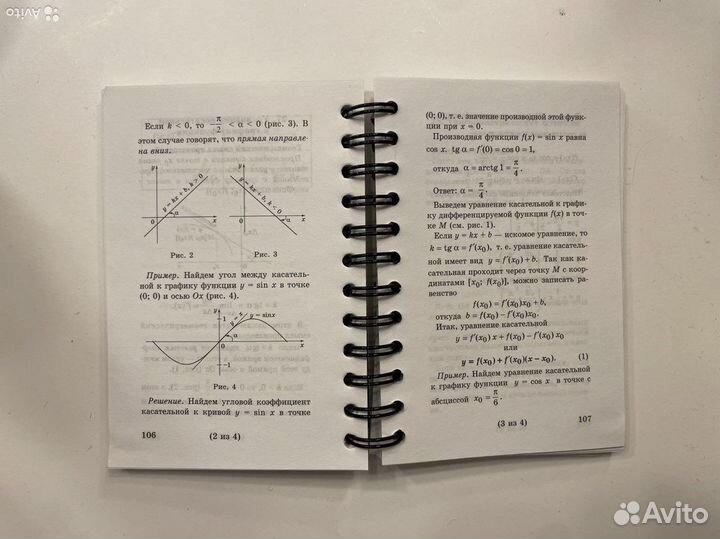 Avito
Если k < 0, то −π/2 < α < 0 (рис. 3). В
этом случае говорят, что прямая направле-
на вниз.
y
y = kx + b, k > 0
α
0
x
y
y = kx + b, k < 0
α
0
x
Рис. 2
Рис. 3
Пример. Найдем угол между касатель-
ной к графику функции y = sin x в точке
(0; 0) и осью Ox (рис. 4).
y
1
y = x
y = sinx
α
0
x
−1
Рис. 4
Решение. Найдем угловой коэффициент
касательной к кривой y = sin x в точке
106
(2 из 4)
(0; 0), т. е. значение производной этой функ-
ции при x = 0.
Производная функции f(x) = sin x равна
cos x. tg α = f′(0) = cos 0 = 1,
откуда α = arctg 1 = π/4.
Ответ: α = π/4.
Выведем уравнение касательной к графи-
ку дифференцируемой функции f(x) в точ-
ке M (см. рис. 1).
Если y = kx + b — искомое уравнение, то
k = tg α = f′(x₀), т. е. уравнение касатель-
ной имеет вид y = f′(x₀) + b. Так как ка-
сательная проходит через точку M с коор-
динатами [x₀; f(x₀)], можно записать ра-
венство
f(x₀) = f′(x₀)x₀ + b,
откуда b = f(x₀) − f′(x₀)x₀.
Итак, уравнение касательной
y = f′(x₀)x + f(x₀) − f′(x₀)x₀
или
y = f(x₀) + f′(x₀)(x − x₀). (1)
Пример. Найдем уравнение касательной
к графику функции y = cos x в точке с
абсциссой x₀ = π/6.
(3 из 4)
107
Avito